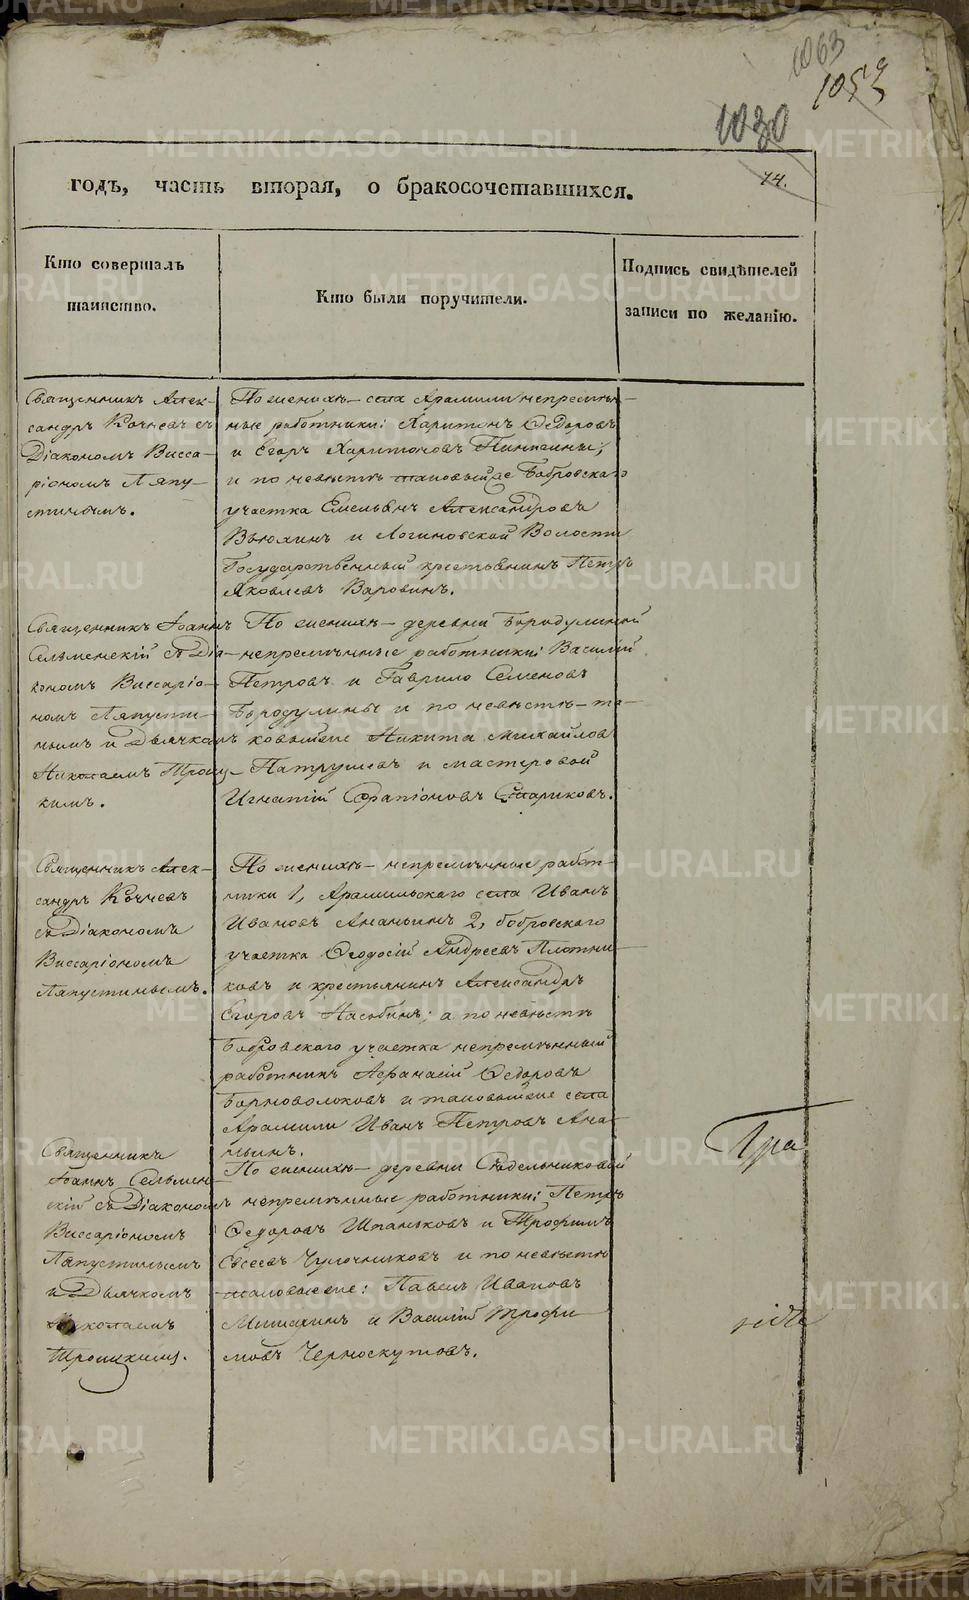 1063
1059
1030
74.
годъ, часть вторая, о бракосочетавшихся.
Кто совершалъ
таинство.
Кто были поручители.
Подпись свидѣтелей
записи по желанію.
Священникъ Алек-
сандръ Кочневъ съ
Діакономъ Висса-
ріономъ Ляпу-
стинымъ.
По женихѣ – села Арамили непремѣн-
ные работники: Харитонъ Ѳедоровъ
и Егоръ Харитоновъ
и по невѣстѣ таковый же Бобровскаго
участка Емельянъ Александровъ
Вьюхинъ и Логиновской Волости
Государственный крестьянинъ Петръ
Яковлевъ Варовинъ.
Священникъ Іоаннъ
Сельменскій съ Діа-
кономъ Виссаріо-
номъ Ляпусти-
нымъ и Дьячкомъ
Николаемъ Троиц-
кимъ.
По женихѣ – деревни Бородулиной
непремѣнные работники: Василій
Петровъ и Гаврило Семеновъ
Бородулины и по невѣстѣ – та-
ковые же Никита Михайловъ
Патрушевъ и мастеровой
Игнатій Серапіоновъ Стариковъ.
Священникъ Алек-
сандръ Кочневъ
съ Діакономъ
Виссаріономъ
Ляпустинымъ.
По женихѣ – непремѣнные работ-
ники 1, Арамильскаго села Иванъ
Ивановъ Ананьинъ 2, бобровскаго
участка Ѳеодосій Андреевъ Плотни-
ковъ и крестьянинъ Александръ
Егоровъ а по невѣстѣ
Бобровскаго участка непремѣнный
работникъ Афанасій Ѳедоровъ
Борноволоковъ и таковый же села
Арамили Иванъ Петровъ Ана-
ньинъ.
Священникъ
Іоаннъ Сельмен-
скій съ Діакономъ
Виссаріономъ
Ляпустинымъ
и Дьячкомъ
Николаемъ
Троицкимъ.
По женихѣ – деревни Седельниковой
непремѣнные работники: Петръ
Ѳедоровъ Шпаньковъ и Трофимъ
Евсеевъ Чулочниковъ и по невѣстѣ
таковые же: Павелъ Ивановъ
и Василій Трофи
мовъ Черноскутовъ.